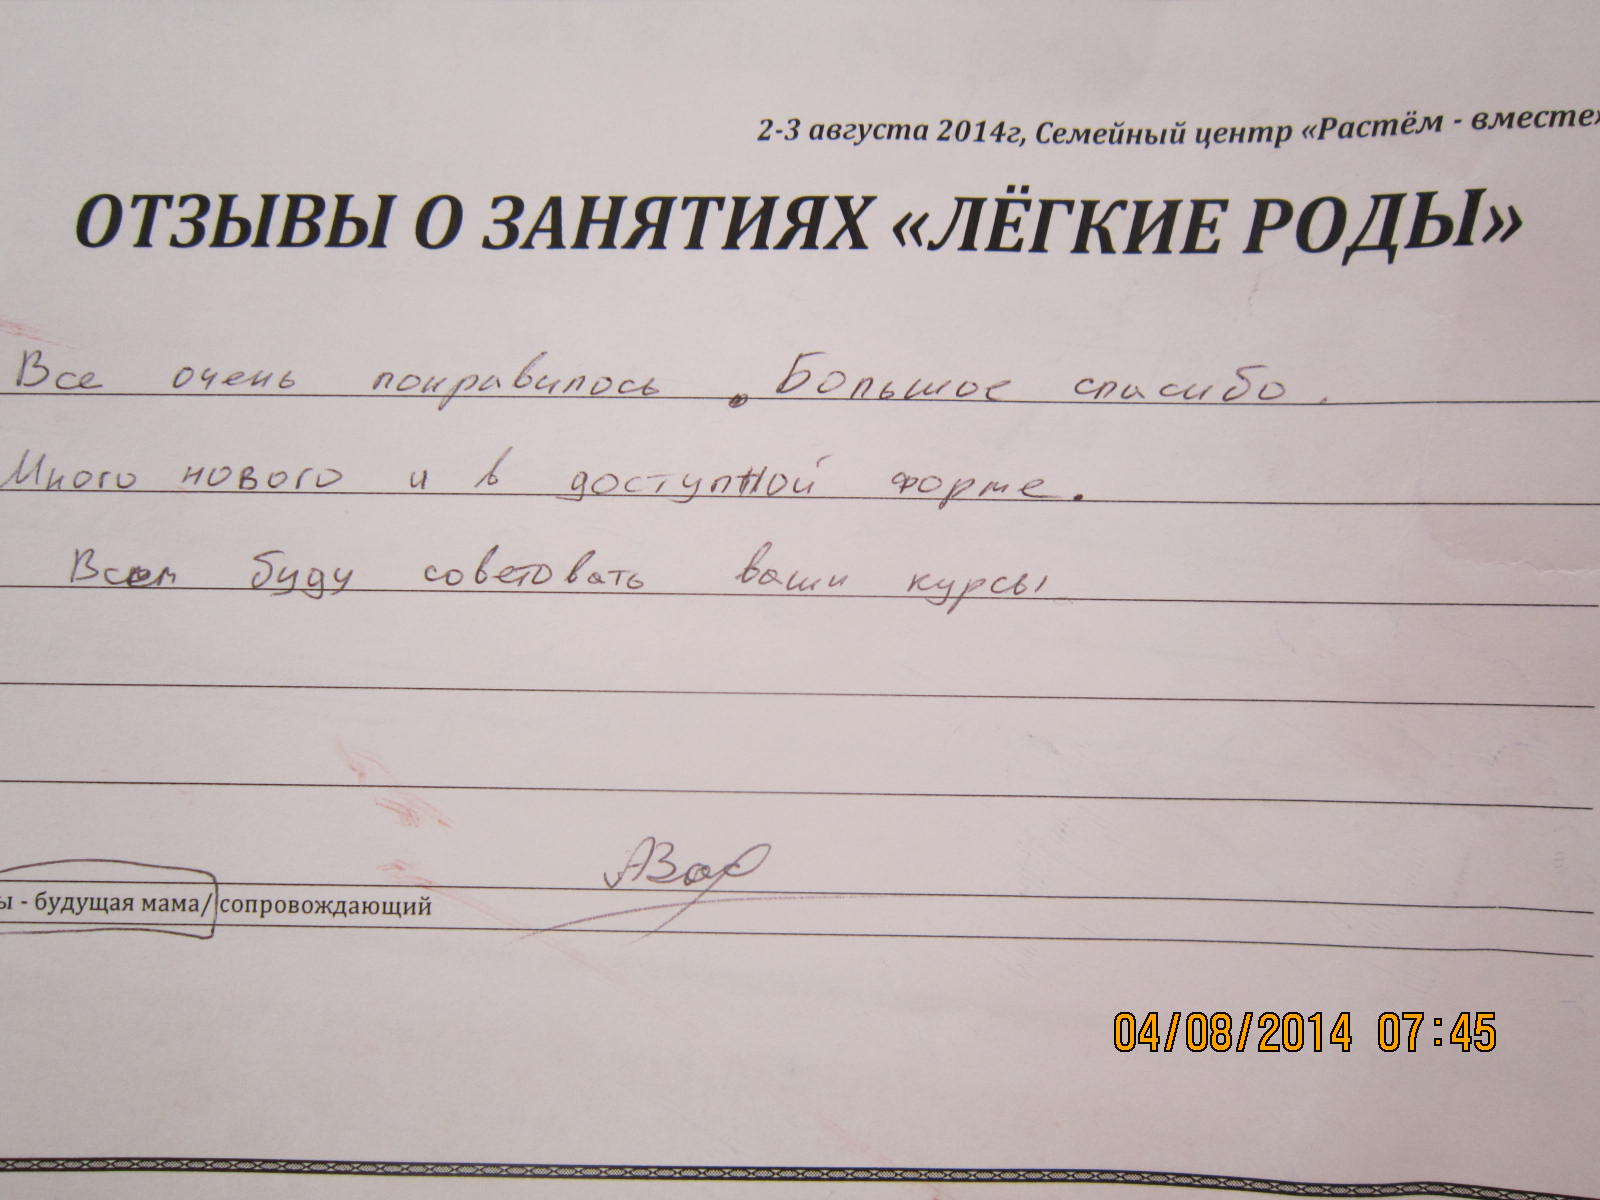 2-3 августа 2014г, Семейный центр «Растём - вместе»
ОТЗЫВЫ О ЗАНЯТИЯХ «ЛЁГКИЕ РОДЫ»
Все очень понравилось. Большое спасибо.
Много нового и в доступной форме.
Всем буду советовать ваши курсы
ы - будущая мама/ сопровождающий
04/08/2014 07:45